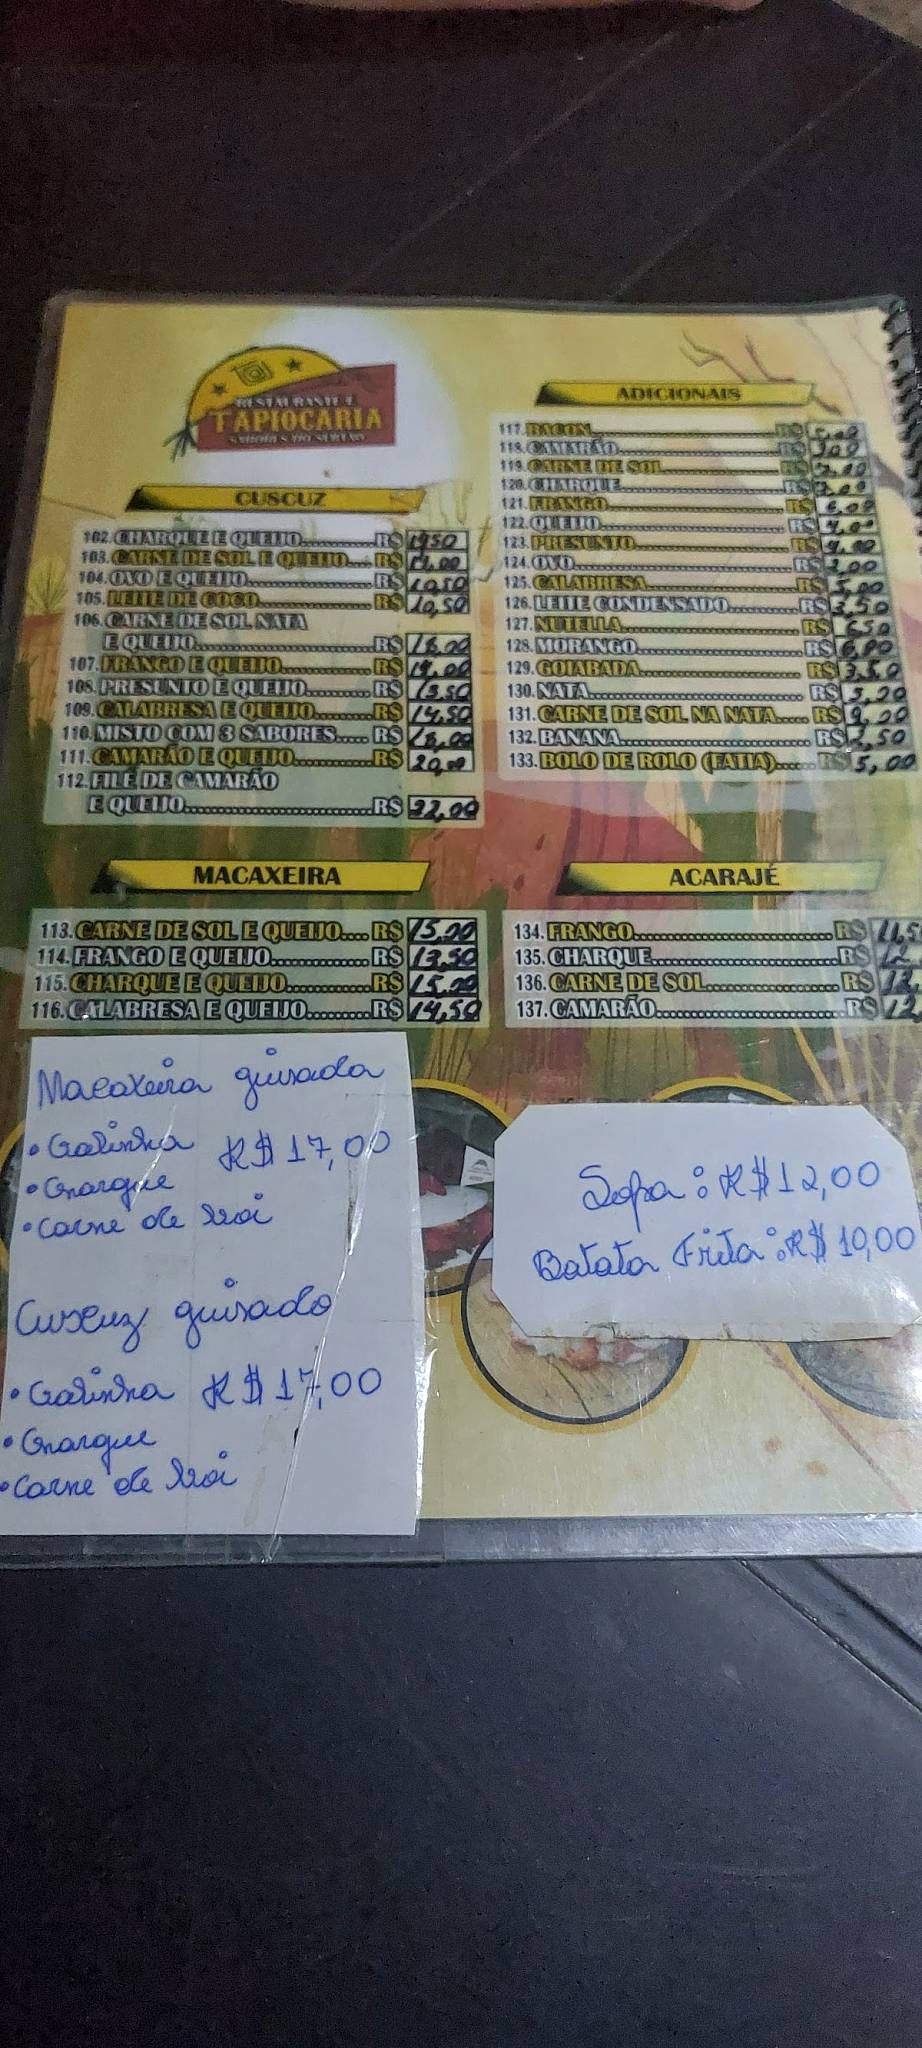 RESTAURANTE E
TAPIOCARIA
SABORES DO SERTÃO
CUSCUZ
102. CHARQUE E QUEIJO R$
103. CARNE DE SOL E QUEIJO R$
104. OVO E QUEIJO R$ 10,50
105. LEITE DE COCO R$ 10,50
106. CARNE DE SOL NATA
E QUEIJO R$ 18,00
107. FRANGO E QUEIJO R$
108. PRESUNTO E QUEIJO R$ 13,50
109. CALABRESA E QUEIJO R$ 14,50
110. MISTO COM 3 SABORES R$ 18,00
111. CAMARÃO E QUEIJO R$ 20,00
112. FILÉ DE CAMARÃO
E QUEIJO R$
MACAXEIRA
113. CARNE DE SOL E QUEIJO R$ 15,00
114. FRANGO E QUEIJO R$ 13,50
115. CHARQUE E QUEIJO R$ 15,00
116. CALABRESA E QUEIJO R$ 14,50
Macaxeira guisada
• Galinha R$ 17,00
• Charque
• Carne de Boi
Cuscuz guisado
• Galinha R$ 17,00
• Charque
• Carne de Boi
ADICIONAIS
117. BACON R$ 5,00
118. CAMARÃO R$
119. CARNE DE SOL R$ 7,00
120. CHARQUE R$ 7,00
121. FRANGO R$ 6,00
122. QUEIJO R$ 4,00
123. PRESUNTO R$ 4,00
124. OVO R$ 2,00
125. CALABRESA R$ 5,00
126. LEITE CONDENSADO R$ 3,50
127. NUTELLA R$ 6,50
128. MORANGO R$ 6,00
129. GOIABADA R$ 3,50
130. NATA R$
131. CARNE DE SOL NA NATA R$ 9,00
132. BANANA R$
133. BOLO DE ROLO (FATIA) R$ 5,00
ACARAJÉ
134. FRANGO R$ 11,5
135. CHARQUE R$ 12,
136. CARNE DE SOL R$
137. CAMARÃO R$ 12,
Sopa: R$ 12,00
Batata Frita: R$ 10,00